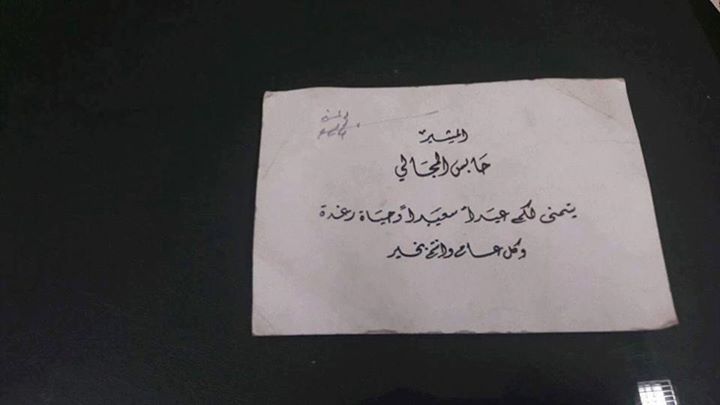 المشير
حابس المجالي
يتمنى لكم عيداً سعيداً وحياة رغدة
وكل عام وانتم بخير